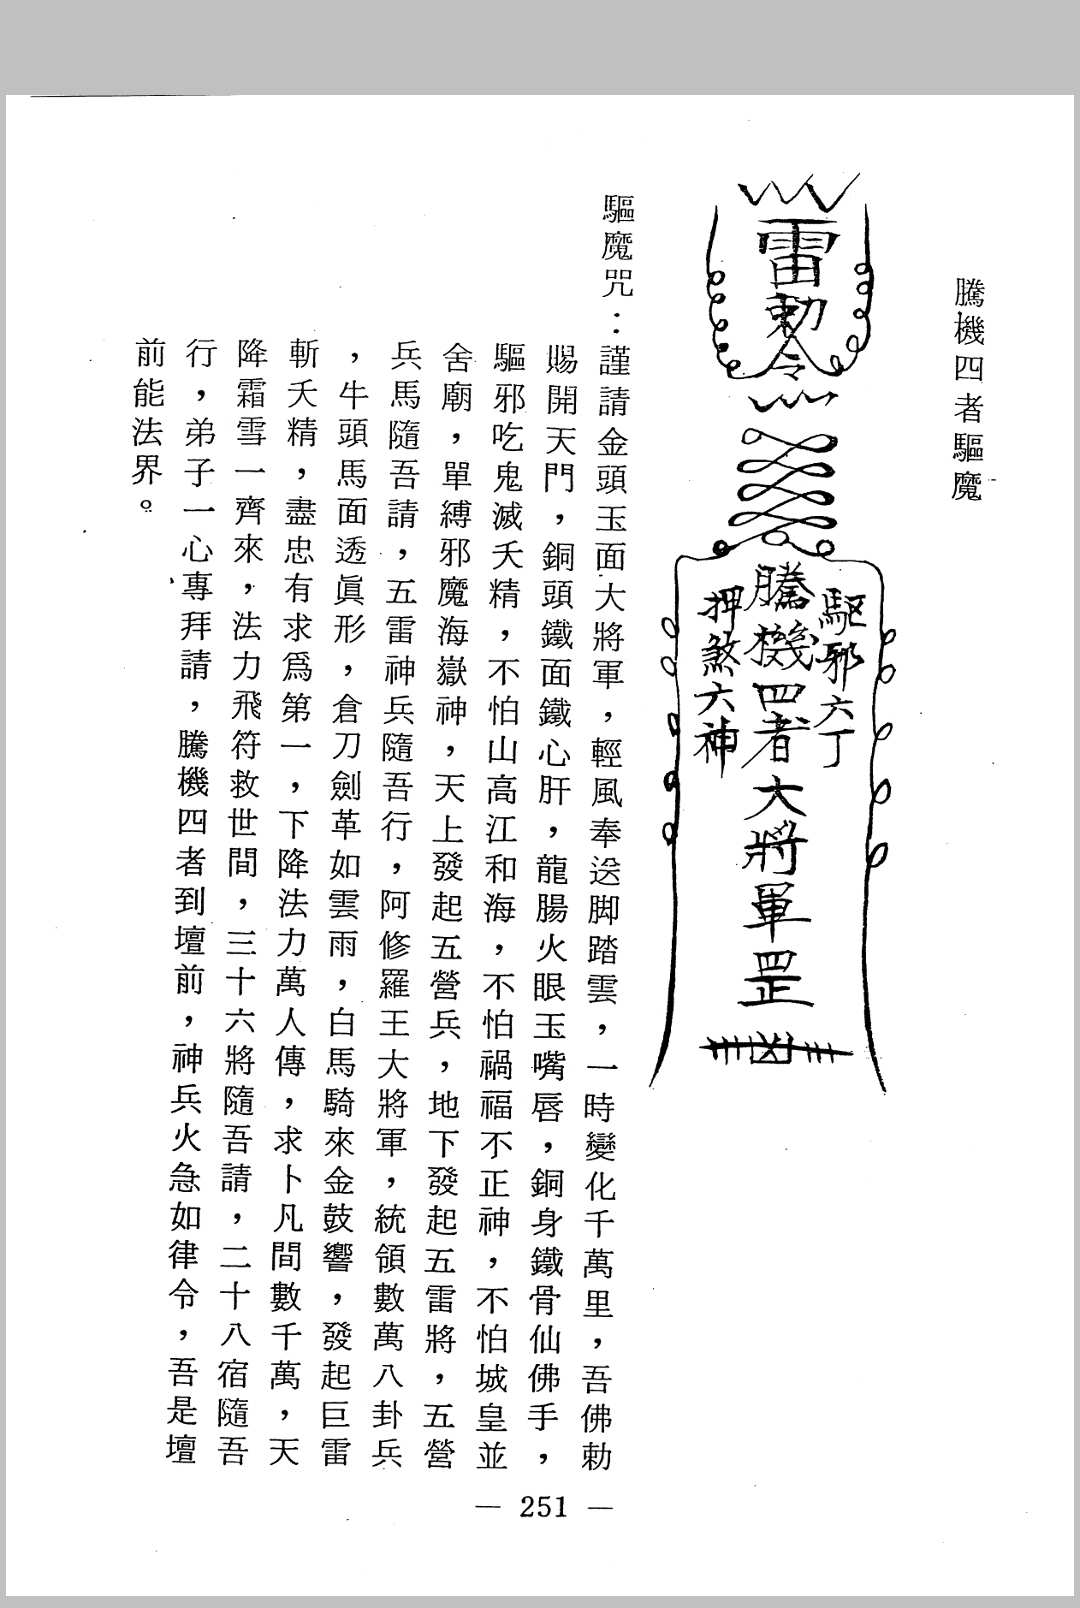 騰機四者驅魔
雷勅令
驅邪六丁
騰機四者大將軍罡
押煞六神
驅魔咒：謹請金頭玉面大將軍，輕風奉送脚踏雲，一時變化千萬里，吾佛勅
賜開天門，銅頭鐵面鐵心肝，龍腸火眼玉嘴唇，銅身鐵骨仙佛手，
驅邪吃鬼滅夭精，不怕山高江和海，不怕禍福不正神，不怕城皇並
舍廟，單縛邪魔海嶽神，天上發起五營兵，地下發起五雷將，五營
兵馬隨吾請，五雷神兵隨吾行，阿修羅王大將軍，統領數萬八卦兵
，牛頭馬面透眞形，倉刀劍革如雲雨，白馬騎來金鼓響，發起巨雷
斬夭精，盡忠有求爲第一，下降法力萬人傳，求卜凡間數千萬，天
降霜雪一齊來，法力飛符救世間，三十六將隨吾請，二十八宿隨吾
行，弟子一心專拜請，騰機四者到壇前，神兵火急如律令，吾是壇
前能法界。
— 251 —